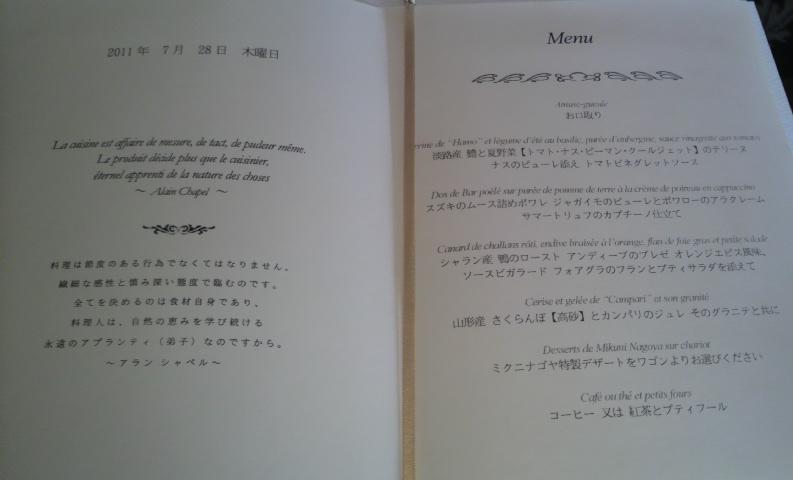 2011年 7月 28日 木曜日
La cuisine est affaire de mesure, de tact, de pudeur même.
Le produit décide plus que le cuisinier,
éternel apprenti de la nature des choses
～ Alain Chapel ～
料理は節度のある行為でなくてはなりません。
繊細な感性と慎み深い態度で臨むのです。
全てを決めるのは食材自身であり、
料理人は、自然の恵みを学び続ける
永遠のアプランティ（弟子）なのですから。
～アラン シャペル～
Menu
Amuse-gueule
お口取り
de "Hamo" et légume d'été au basilic, purée d'aubergine, sauce vinaigrette aux tomates
淡路産 鱧と夏野菜【トマト・ナス・ピーマン・クールジェット】のテリーヌ
ナスのピューレ添え トマトビネグレットソース
Dos de Bar poêlé sur purée de pomme de terre à la crème de poireau en cappuccino
スズキのムース詰めポワレ ジャガイモのピューレとポワローのアラクレーム
サマートリュフのカプチーノ仕立て
Canard de challans rôti, endive braisée à l'orange, flan de foie gras et petite salade
シャラン産 鴨のロースト アンディーブのブレゼ オレンジエピス風味、
ソースビガラード フォアグラのフランとプティサラダを添えて
Cerise et gelée de "Campari" et son granité
山形産 さくらんぼ【高砂】とカンパリのジュレ そのグラニテと共に
Desserts de Mikuni Nagoya sur chariot
ミクニナゴヤ特製デザートをワゴンよりお選びください
Café ou thé et petits fours
コーヒー 又は 紅茶とプティフール